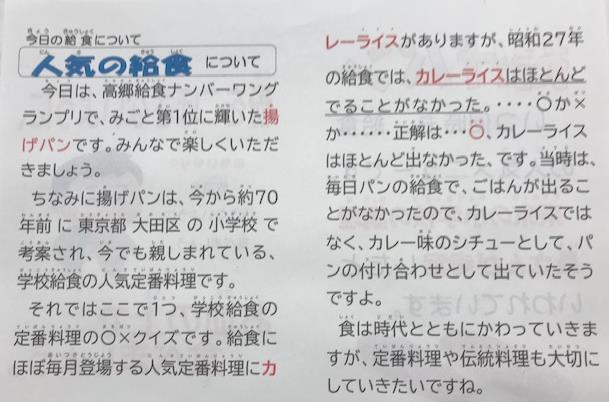 今日の給食について
人気の給食 について
今日は、高郷給食ナンバーワング
ランプリで、みごと第1位に輝いた揚
げパンです。みんなで楽しくいただ
きましょう。
ちなみに揚げパンは、今から約70
年前に東京都大田区の小学校で
考案され、今でも親しまれている、
学校給食の人気定番料理です。
それではここで1つ、学校給食の
定番料理の〇×クイズです。給食に
ほぼ毎月登場する人気定番料理にカ
レーライスがありますが、昭和27年
の給食では、カレーライスはほとんど
でることがなかった。・・・・〇か×
か・・・・・・正解は・・・〇、カレーライス
はほとんど出なかった、です。当時は、
毎日パンの給食で、ごはんが出るこ
とがなかったので、カレーライスでは
なく、カレー味のシチューとして、パ
ンの付け合わせとして出ていたそう
ですよ。
食は時代とともにかわっていきま
すが、定番料理や伝統料理も大切に
していきたいですね。